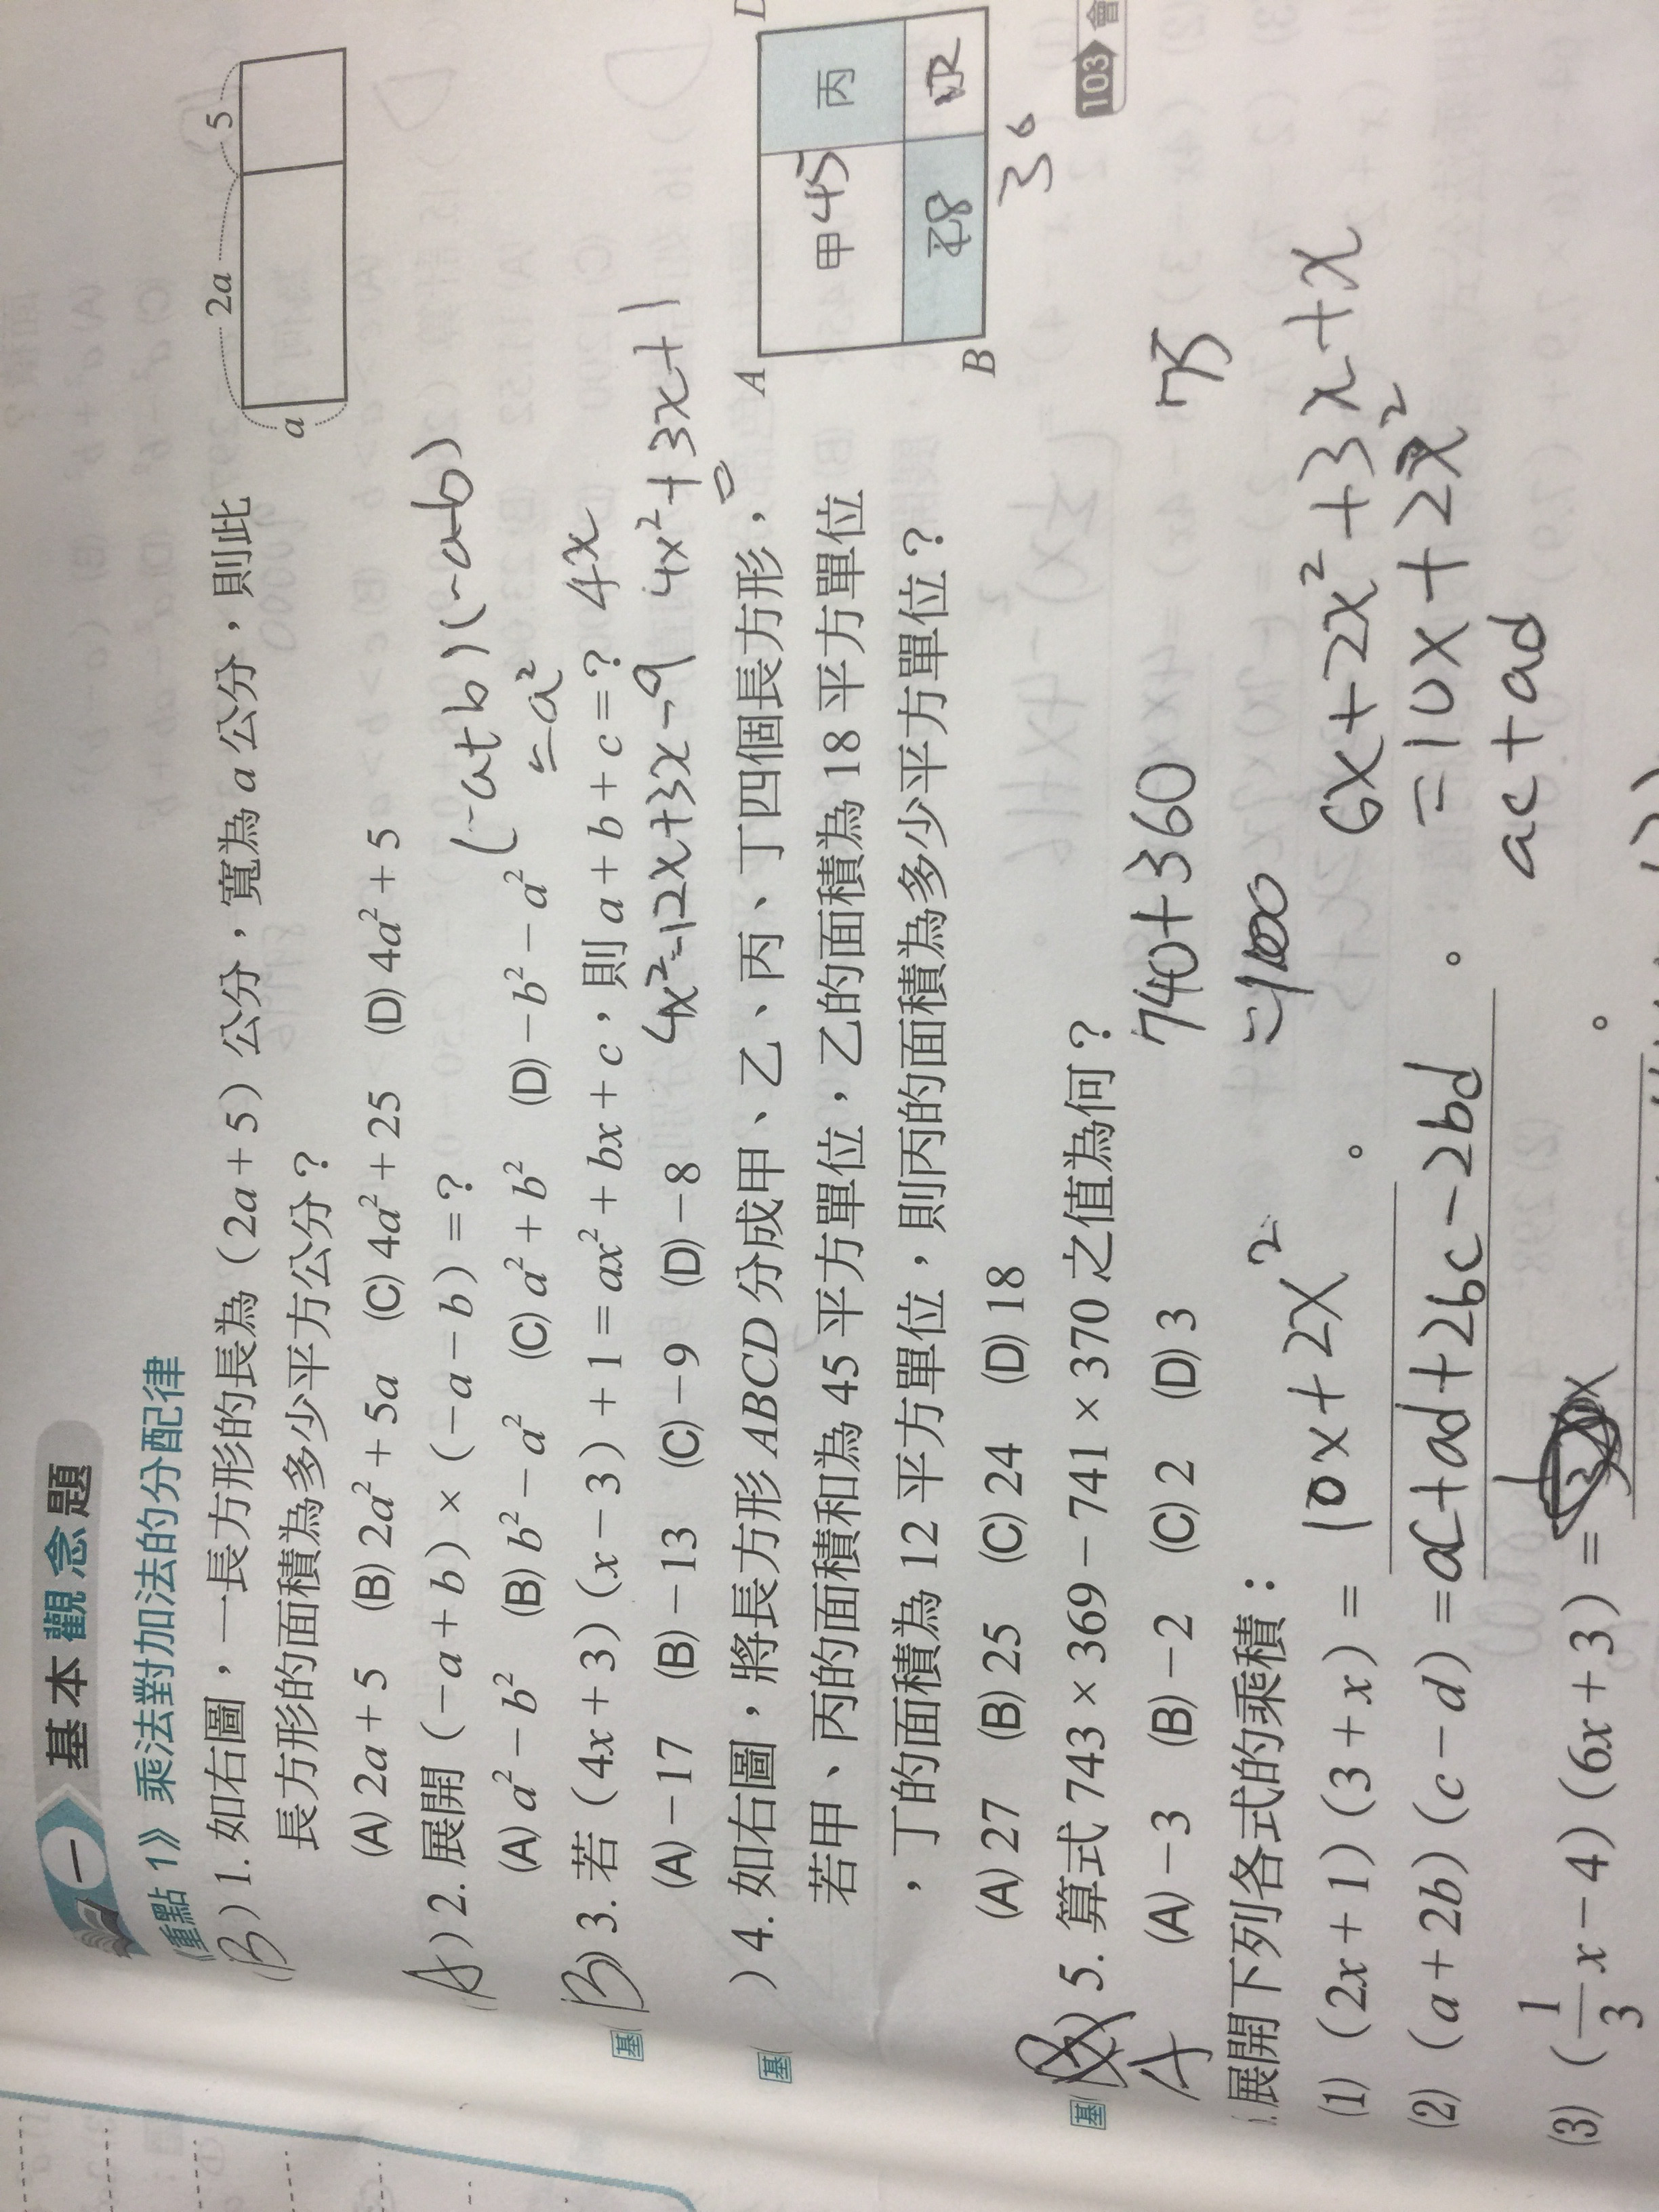 一 基本觀念題
《重點1》乘法對加法的分配律
(B) 1. 如右圖，一長方形的長為（2a＋5）公分，寬為 a 公分，則此
長方形的面積為多少平方公分？
(A) 2a＋5 (B) 2a²＋5a (C) 4a²＋25 (D) 4a²＋5
2a 5
a
(A) 2. 展開（－a＋b）×（－a－b）＝？
(-a+b)(-a-b)
(A) a²－b² (B) b²－a² (C) a²＋b² (D)－b²－a²
=a²
基 (B) 3. 若（4x＋3）(x－3）＋1＝ax²＋bx＋c，則 a＋b＋c＝？
4x
(A)－17 (B)－13 (C)－9 (D)－8
4x²-12x+3x-9 4x²+3x+1
基 ( ) 4. 如右圖，將長方形 ABCD 分成甲、乙、丙、丁四個長方形，
若甲、丙的面積和為 45 平方單位，乙的面積為 18 平方單位
，丁的面積為 12 平方單位，則丙的面積為多少平方單位？
(A) 27 (B) 25 (C) 24 (D) 18
A D
甲 45 丙
B
36
基 ( ) 5. 算式 743×369－741×370 之值為何？
A
(A)－3 (B)－2 (C) 2 (D) 3
740+360
=1100
75
展開下列各式的乘積：
(1)（2x＋1）(3＋x）＝ 10x+2x² 。
6x+2x²+3x+x
=10x+2x²
(2)（a＋2b）(c－d）＝ac+ad+2bc-2bd 。
ac+ad
(3)（1/3 x－4）(6x＋3）＝ 。
103 會